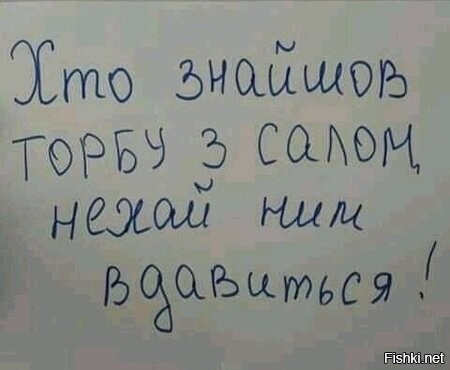 Хто знайшов
торбу з салом,
нехай ним
вдавиться!
Fishki.net